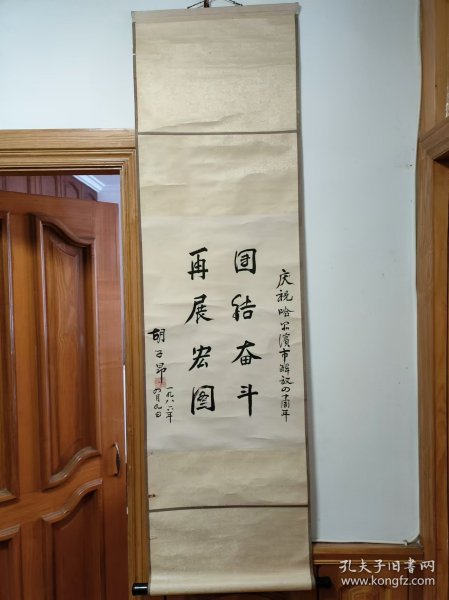 庆祝哈尔滨市解放四十周年
团结奋斗
再展宏图
胡子昂
一九八六年
四月九日
孔夫子旧书网
www.kongfz.com